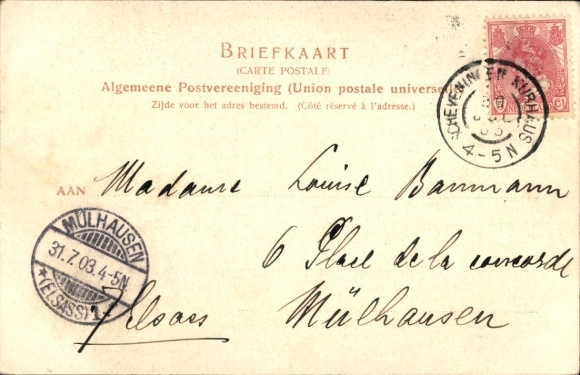 BRIEFKAART
(CARTE POSTALE)
Algemeene Postvereeniging (Union postale universelle)
Zijde voor het adres bestemd. (Côté réservé à l'adresse.)
SCHEVENINGEN KURHAUS
4-5 N
AAN Madame Louise Baumann
6 Place de la concorde
Elsass Mülhausen
MÜLHAUSEN
31.7.03.4-5N
*(ELSASS)1